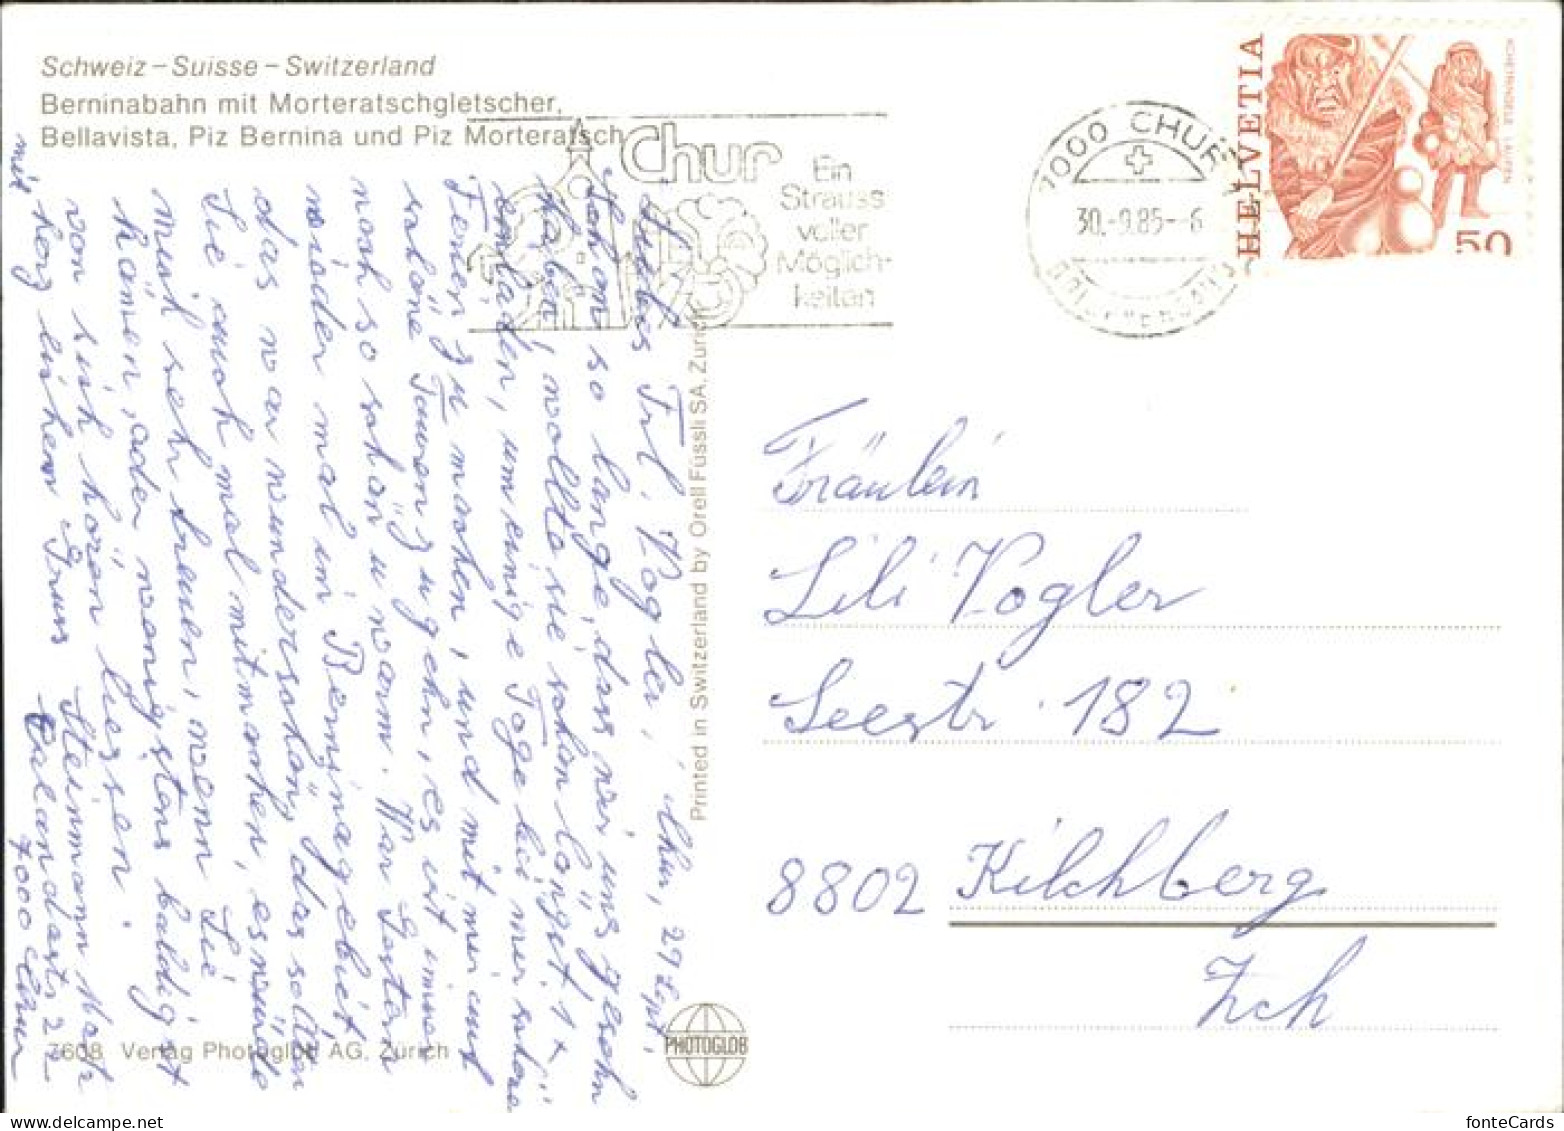 Schweiz – Suisse – Switzerland
Berninabahn mit Morteratschgletscher,
Bellavista, Piz Bernina und Piz Morteratsch
Chur
Ein
Strauss
voller
Möglich-
keiten
7000 CHUR 1
30.-9.85--6
HELVETIA
50
Chur, 29 Sept.
Liebes Frl. Vogler,
Schon so lange, dass wir uns gesehn
haben, wollte sie schon längst 1x
einladen, um einige Tage bei mir schöne
Ferien zu machen, und mit mir auf
schöne Touren zu gehn, es ist immer
noch so schön u warm. War Gestern
wieder mal im Berninagebiet
das war wunderschön, das sollten
Sie auch mal mitmachen, es würde
mich sehr freuen, wenn Sie
kämen, oder wenigstens baldigst
von sich hören liessen.
mit herzlichem Gruss Steinmann
Calandastr 22
7000 Chur
Printed in Switzerland by Orell Füssli SA, Zürich
7608 Verlag Photoglob AG, Zürich
PHOTOGLOB
Fräulein
Lili Vogler
Seestr. 182
8802 Kilchberg
Zch
fonteCards